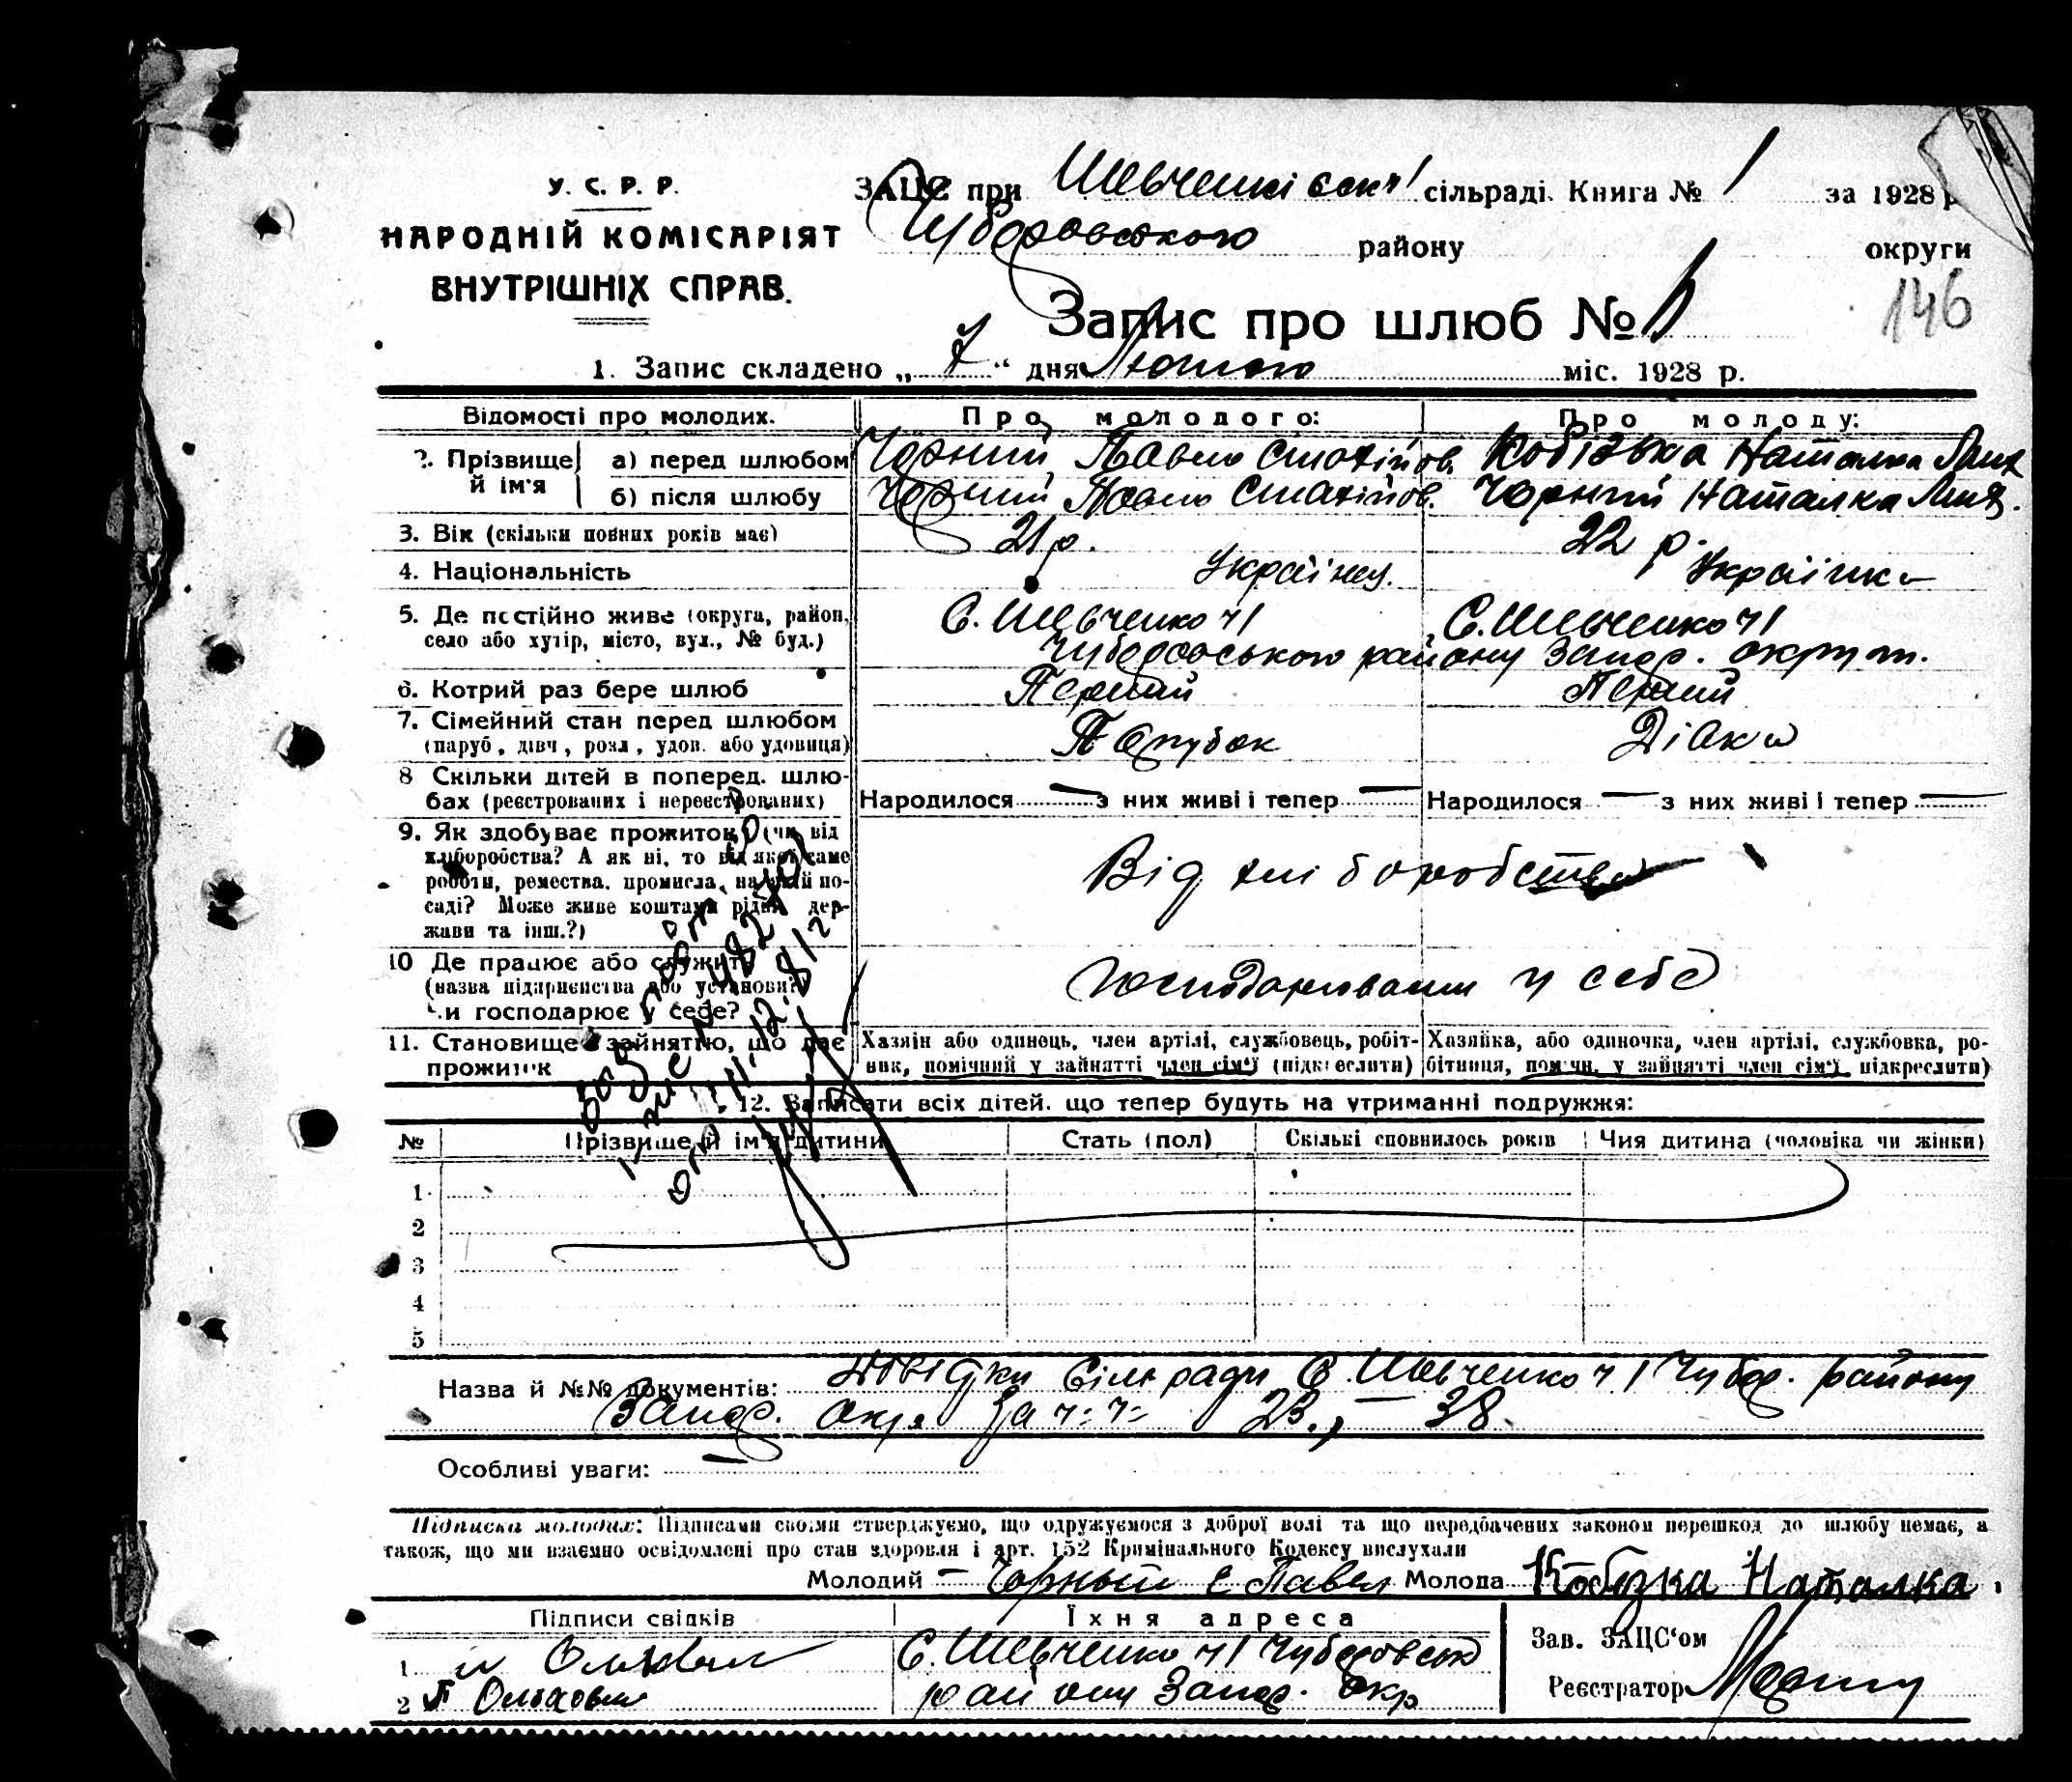 У. С. Р. Р.
НАРОДНІЙ КОМІСАРІЯТ
ВНУТРІШНІХ СПРАВ.
ЗАЦС при сільраді. Книга № 1 за 1928 р.
Чубарівського району округи
Запис про шлюб № 146
1. Запис складено „ 7 “ дня Лютого міс. 1928 р.
Відомості про молодих. Про молодого: Про молоду:
2. Прізвище й ім'я
а) перед шлюбом Чорний Павло Наталка
б) після шлюбу Чорний Павло Чорний Наталка
3. Вік (скільки повних років має) 21 р. 22 р.
4. Національність Українец. Українка
5. Де постійно живе (округа, район, С. Шевченко ч1 С. Шевченко ч1
село або хутір, місто, вул., № буд.) району Запор. округи.
6. Котрий раз бере шлюб Перший Перший
7. Сімейний стан перед шлюбом
(паруб., дівч., розл., удов. або удовиця) Парубок Дівка
8 Скільки дітей в поперед. шлю-
бах (реєстрованих і нереєстрованих) Народилося — з них живі і тепер — Народилося — з них живі і тепер —
9. Як здобуває прожиток (чи від
хліборобства? А як ні, то від якої саме
роботи, ремества, промисла, на якій по-
саді? Може живе коштами рідні, дер-
жави та інш.?)
Від хліборобства
10 Де працює або служить
(назва підприємства або установи?)
чи господарює у себе?
у себе
11. Становище в зайнятю, що дає
прожиток
Хазяїн або одинець, член артілі, службовець, робіт-
ник, помічний у зайнятті член сім'ї (підкреслити)
Хазяйка, або одиночка, член артілі, службовка, ро-
бітниця, поміч. у зайнятті член сім'ї підкреслити)
12. Записати всіх дітей. що тепер будуть на утриманні подружжя:
№ Прізвище й ім'я дитини Стать (пол) Скількі сповнилось років Чия дитина (чоловіка чи жінки)
1
2
3
4
5
Назва й №№ документів: С. Шевченко ч1 Чубар. району
Запор. окр. за ч. ч. 23, — 38.
Особливі уваги: —
Підписка молодих: Підписами своїми стверджуємо, що одружуємося з доброї волі та що передбачених законом перешкод до шлюбу немає, а
також, що ми взаємно освідомлені про стан здоровля і арт. 152 Кримінального Кодексу вислухали
Молодий — Чорный Павел Молода Наталка.
Підписи свідків Їхня адреса
1 С. Шевченко ч1
2 району Запор. окр
Зав. ЗАЦС'ом
Реєстратор